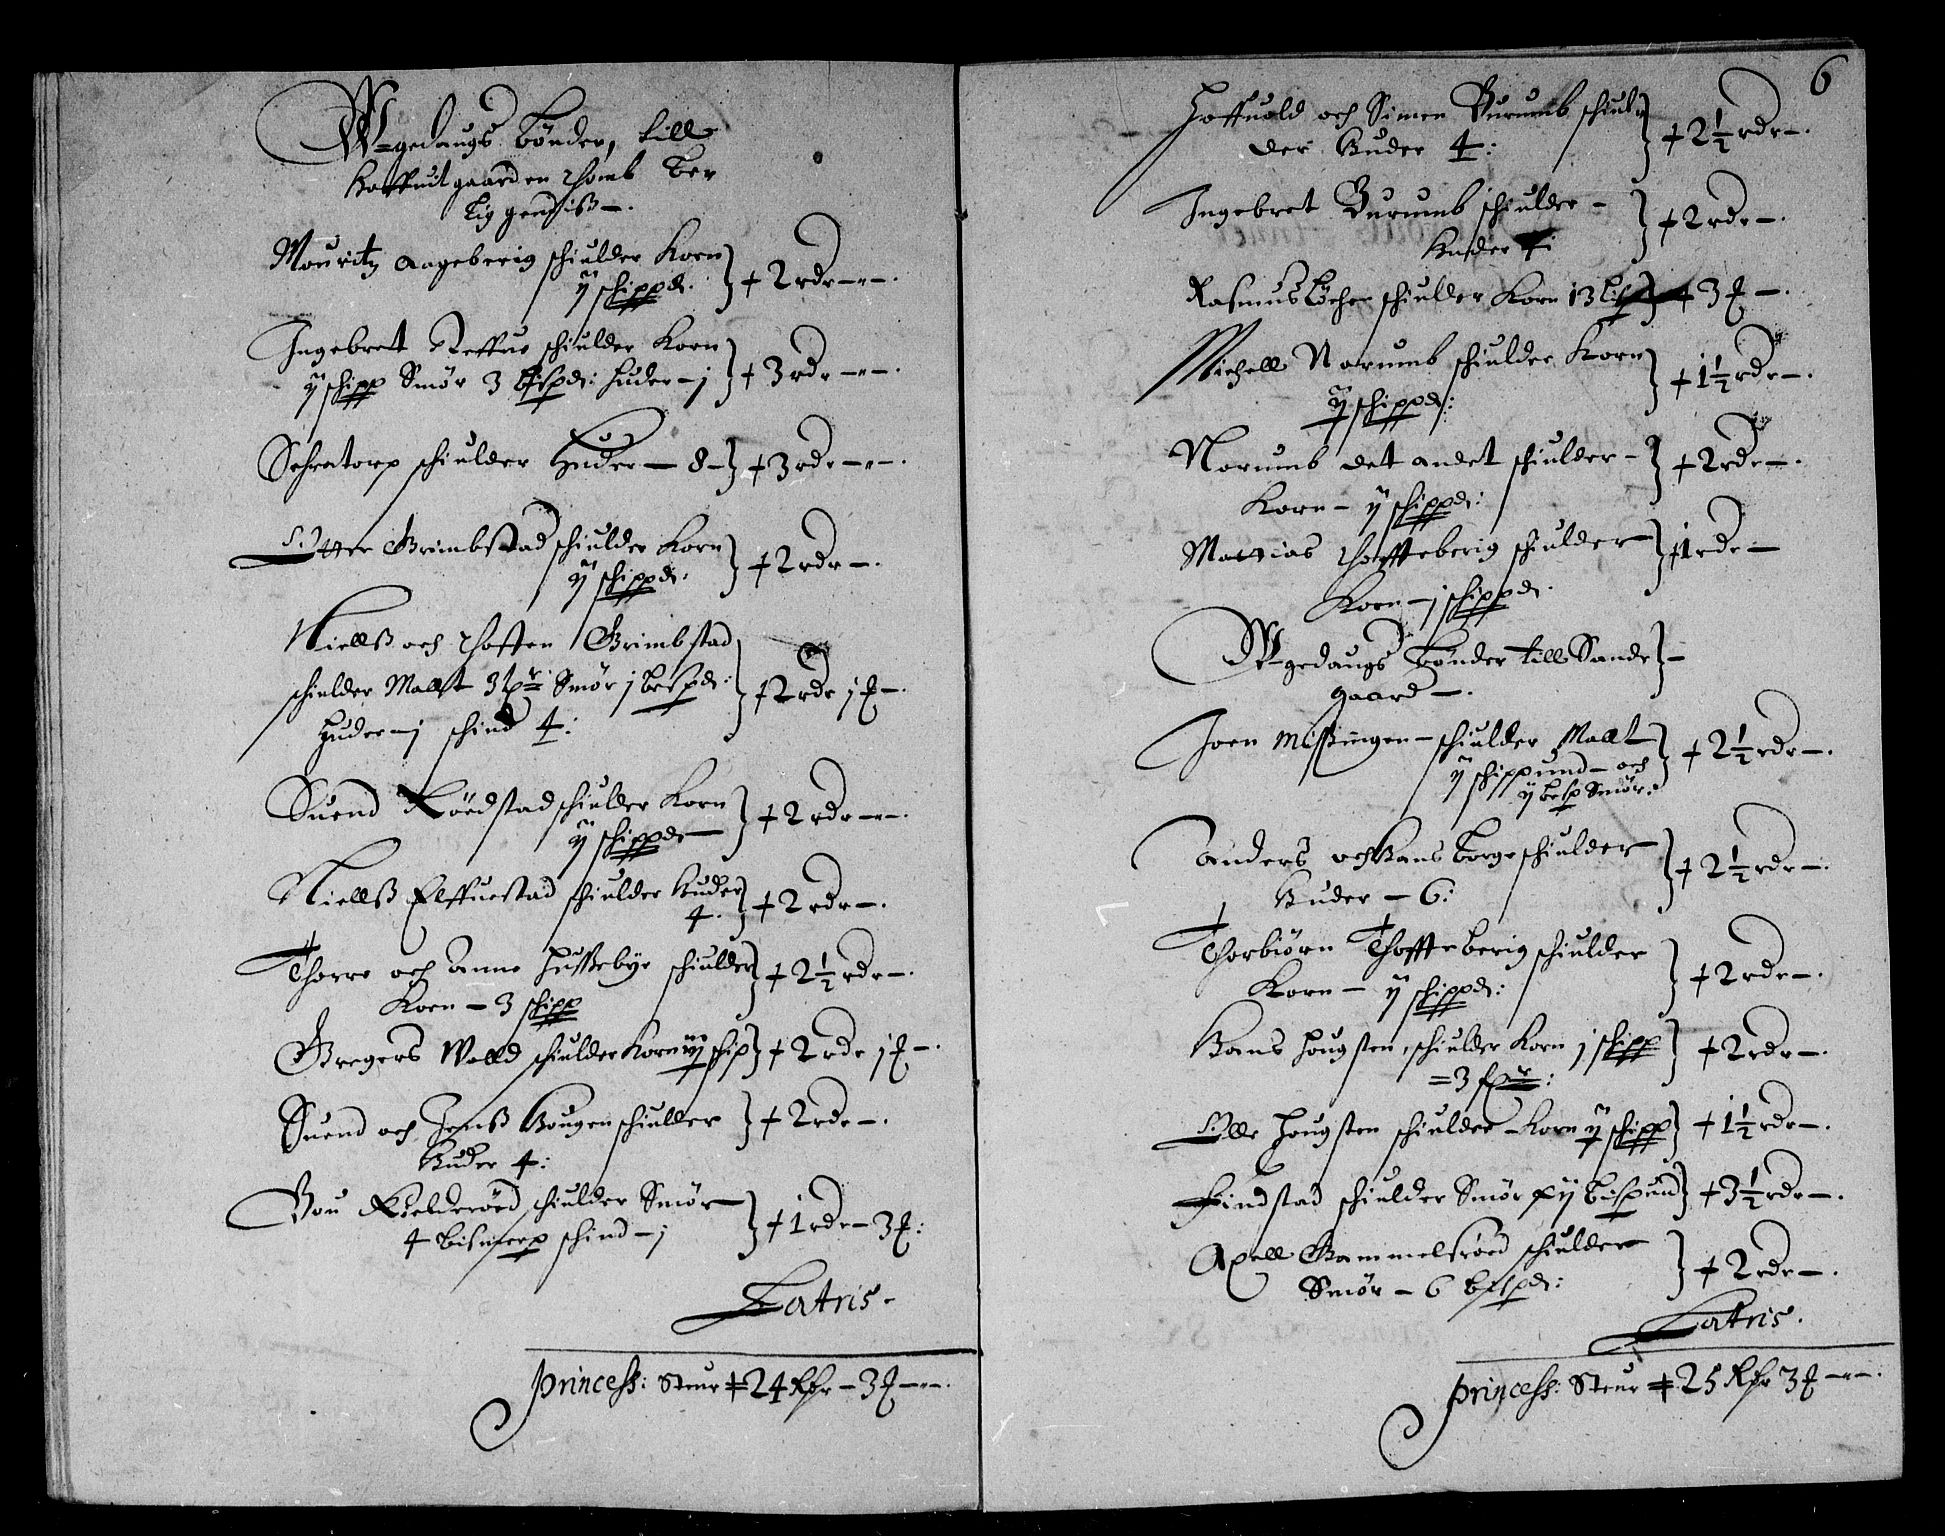 W-gedaugs Bønder, till
Hoffuitgaarden Thomb Ber
liggendiss -.
Mouritz Aageberig schiulder Korn
ij schippd. + 2 rdr -"-.
Ingebret Reffue schiulder Korn
ij schipp Smør 3 bispd: huder - j + 3 rdr -"-.
Sehratorp schiulder Huder - 8 - + 3 rdr -"-.
Otter Grimbstad schiulder Korn
ij schippd. + 2 rdr -.
Niellss och Thosten Grimbstad
schiulder Mallt 3 spr Smør j bispd.
huder - j schind 4: + 2 rdr j £ -.
Suend Röedstad schiulder Korn
ij schippd - + 2 rdr -"-.
Niellss Elffuestad schiulder huder
4. + 2 rdr -.
Thorre och Anne Hussebye schiulder
Korn - 3 schipp + 2 1/2 rdr -.
Gregers Walld schiulder Korn iij schip + 2 rdr j £ -.
Suend och Jenss Hougen schiulder
Huder 4: + 2 rdr -.
Gou Kielderöed schiulder Smør
4 bismerp schind - j + 1 rdr - 3 £:
Latris.
Princess: Steur + 24 Rdr - 3 £ -"-.
6
Hoffuold och Simen Burumb schiul
der Huder 4: + 2 1/2 rdr -.
Ingebret Burumb schiulder -
Huder + 2 rdr -.
Rasmus Löcher schiulder Korn 13 lisp + 3 £ -.
Michell Norumb schiulder Korn
ij schippd: + 1 1/2 rdr -.
Norumb det andet schiulder -
Korn - ij schippd: + 2 rdr -.
Mattias Thoffteberig schiulder
Korn - j schippd. + 1 rdr -
W-gedaugs Bønder till Sande
gaard -.
Joen Missingen - schiulder Mallt
ij schippund - och
ij besp Smør: + 2 1/2 rdr -.
Anders och Hans Borge schiulder
Huder - 6: + 2 1/2 rdr -.
Thorbiörn Thoffteberig schiulder
Korn - ij schippd: + 2 rdr -.
Hans Hougsten, schiulder Korn j schipp
= 3 spr: + 2 rdr -.
Olle Hougsten schiulder - Korn ij schipp + 1 1/2 rdr -.
Findstad schiulder Smør xij bispund + 3 1/2 rdr -.
Axell Gammelsröed schiulder
Smør - 6 bispd: + 2 rdr -.
Latris.
Princess: Steur + 25 Rdr 3 £ -"-.